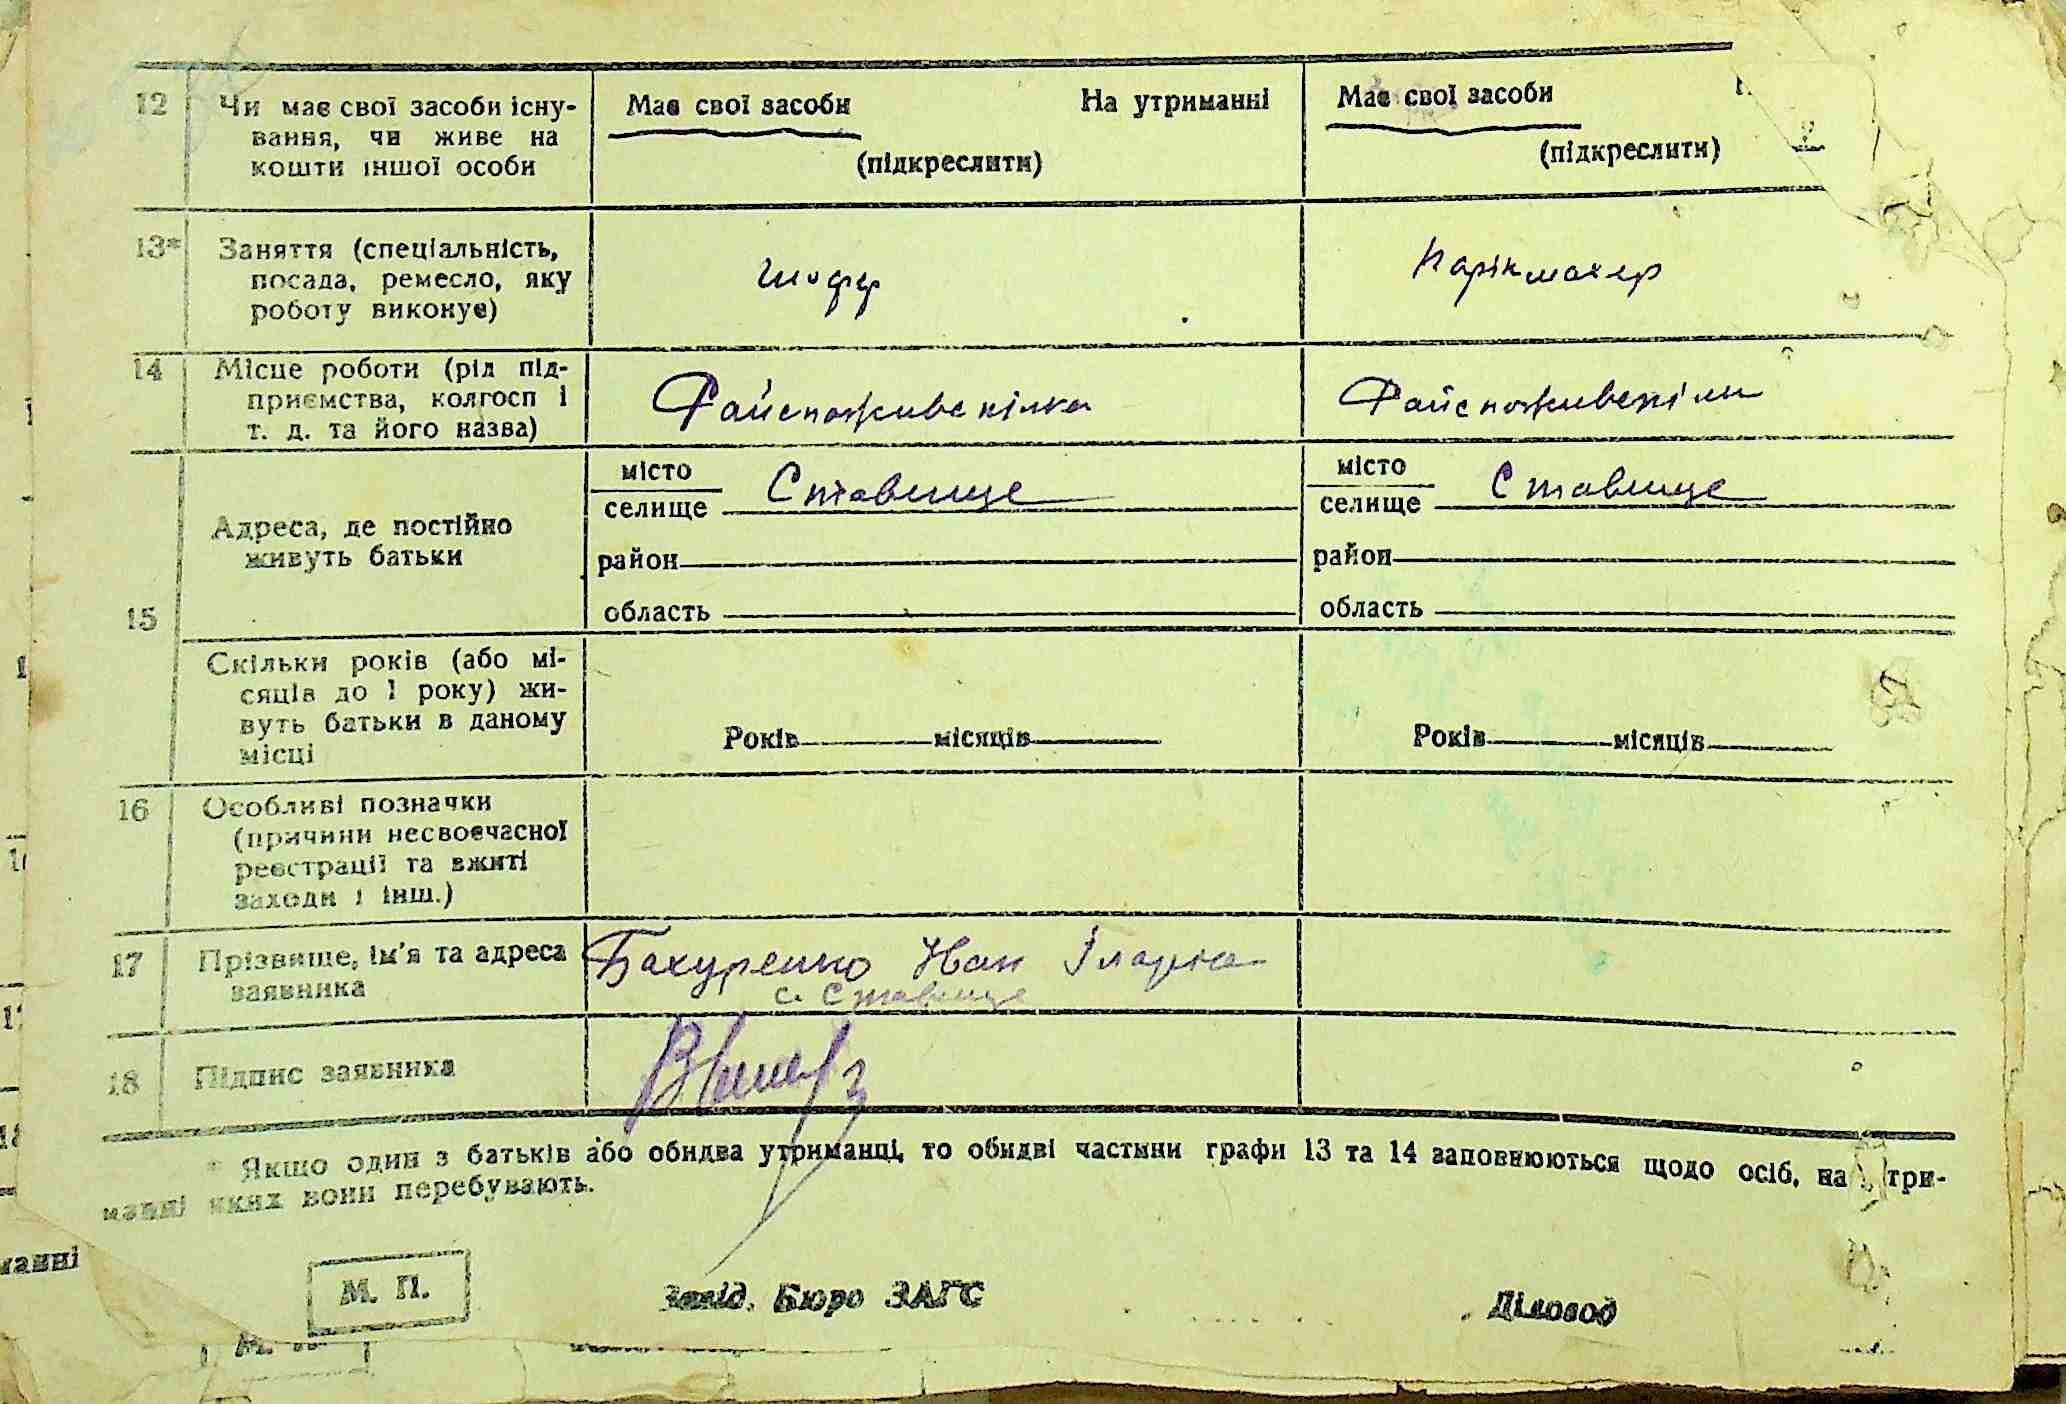 12 Чи має свої засоби існу- Має свої засоби На утриманні Має свої засоби
вання, чи живе на
кошти іншої особи (підкреслити) (підкреслити)
13* Заняття (спеціальність,
посада, ремесло, яку шофер Парікмахер
роботу виконує)
14 Місце роботи (рід під-
приємства, колгосп і Райспоживспілка Райспоживспілка
т. д. та його назва)
15 Адреса, де постійно
живуть батьки
місто
селище Ставище
район
область
місто
селище Ставище
район
область
Скільки років (або мі-
сяців до 1 року) жи-
вуть батьки в даному
місці
Років місяців Років місяців
16 Особливі позначки
(причини несвоєчасної
реєстрації та вжиті
заходи і інш.)
17 Прізвище, ім'я та адреса Бахуренко Иван
заявника с. Ставище
18 Підпис заявника
* Якщо один з батьків або обидва утриманці, то обидві частини графи 13 та 14 заповнюються щодо осіб, на три-
манні яких вони перебувають.
манні
М. П. Завід. Бюро ЗАГС Діловод